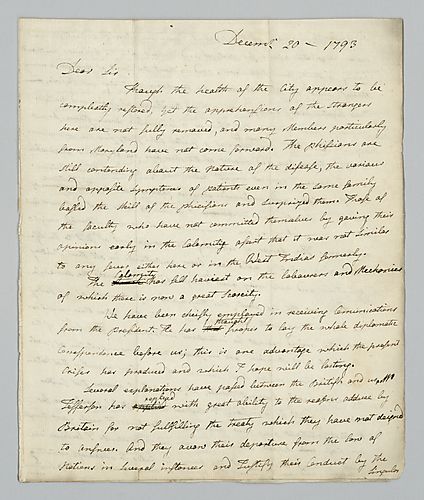 Decemr. 20 - 1793
Dear Sir
Though the health of the City appears to be
compleatly restored, yet the apprehensions of the strangers
here are not fully removed, and many Members particularly
from Maryland have not come forward. The phisicians are
still contending about the Nature of the disease, the various
and opposite symptoms of patients even in the same family
baffled the skill of the phisicians and surprized them. Those of
the faculty who have not committed themselves by giving their
opinions early in the Calamity assert that it was not similar
to any fever either here or in the West Indias formerly.
The Calamity has fell heaviest on the Labourers and Mechanices
of which there is now a great scarcity.
We have been chiefly employed in receiving Comunications
from the president. He has thought proper to lay the whole diplomatic
Correspondence before us; this is one advantage which the present
Crises has produced and which I hope will be lasting.
Several explanations have passed between the British and us. Mr
Jefferson has replyed with great ability to the reasons adduced by
Britain for not fulfilling the treaty which they have not deigned
to answer. And they avow their departure from the law of
Nations in several instances and Justify their Conduct by the
Singular